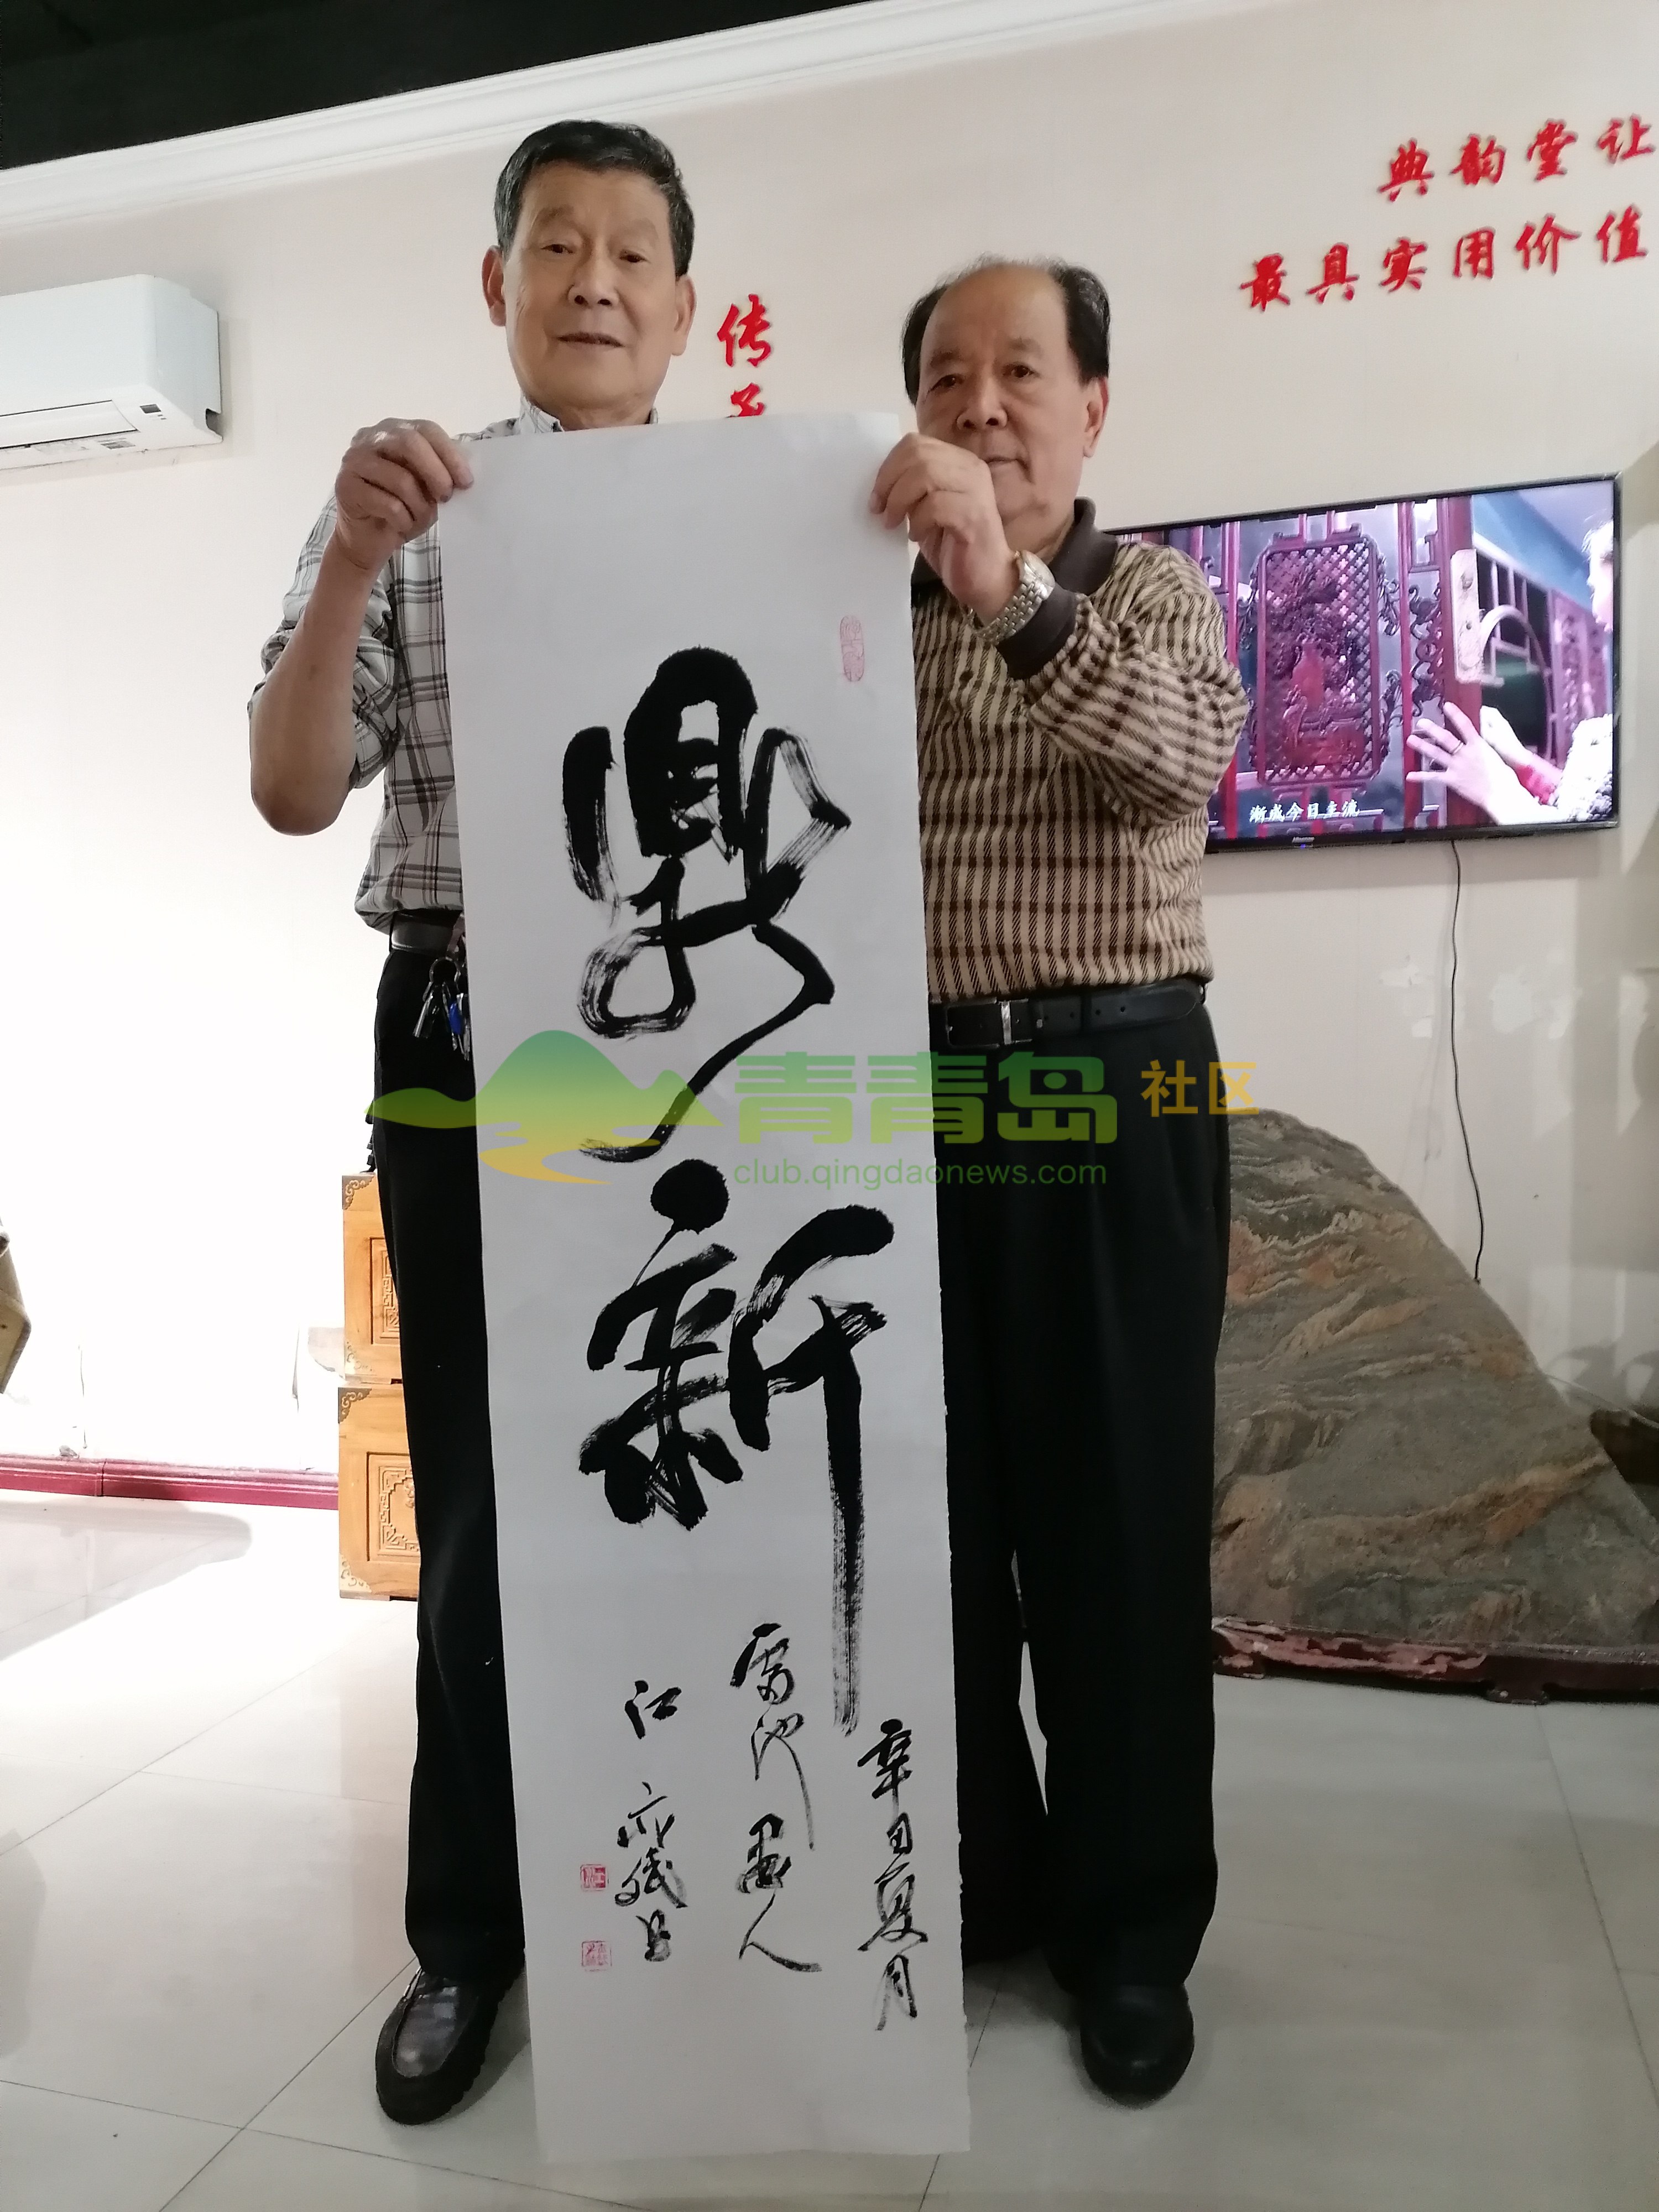 典韵堂让
最具实用价值
传
渐成今日主流
Hisense
鼎新
辛丑夏月
雷池墨人
江
青青岛 社区
club.qingdaonews.com